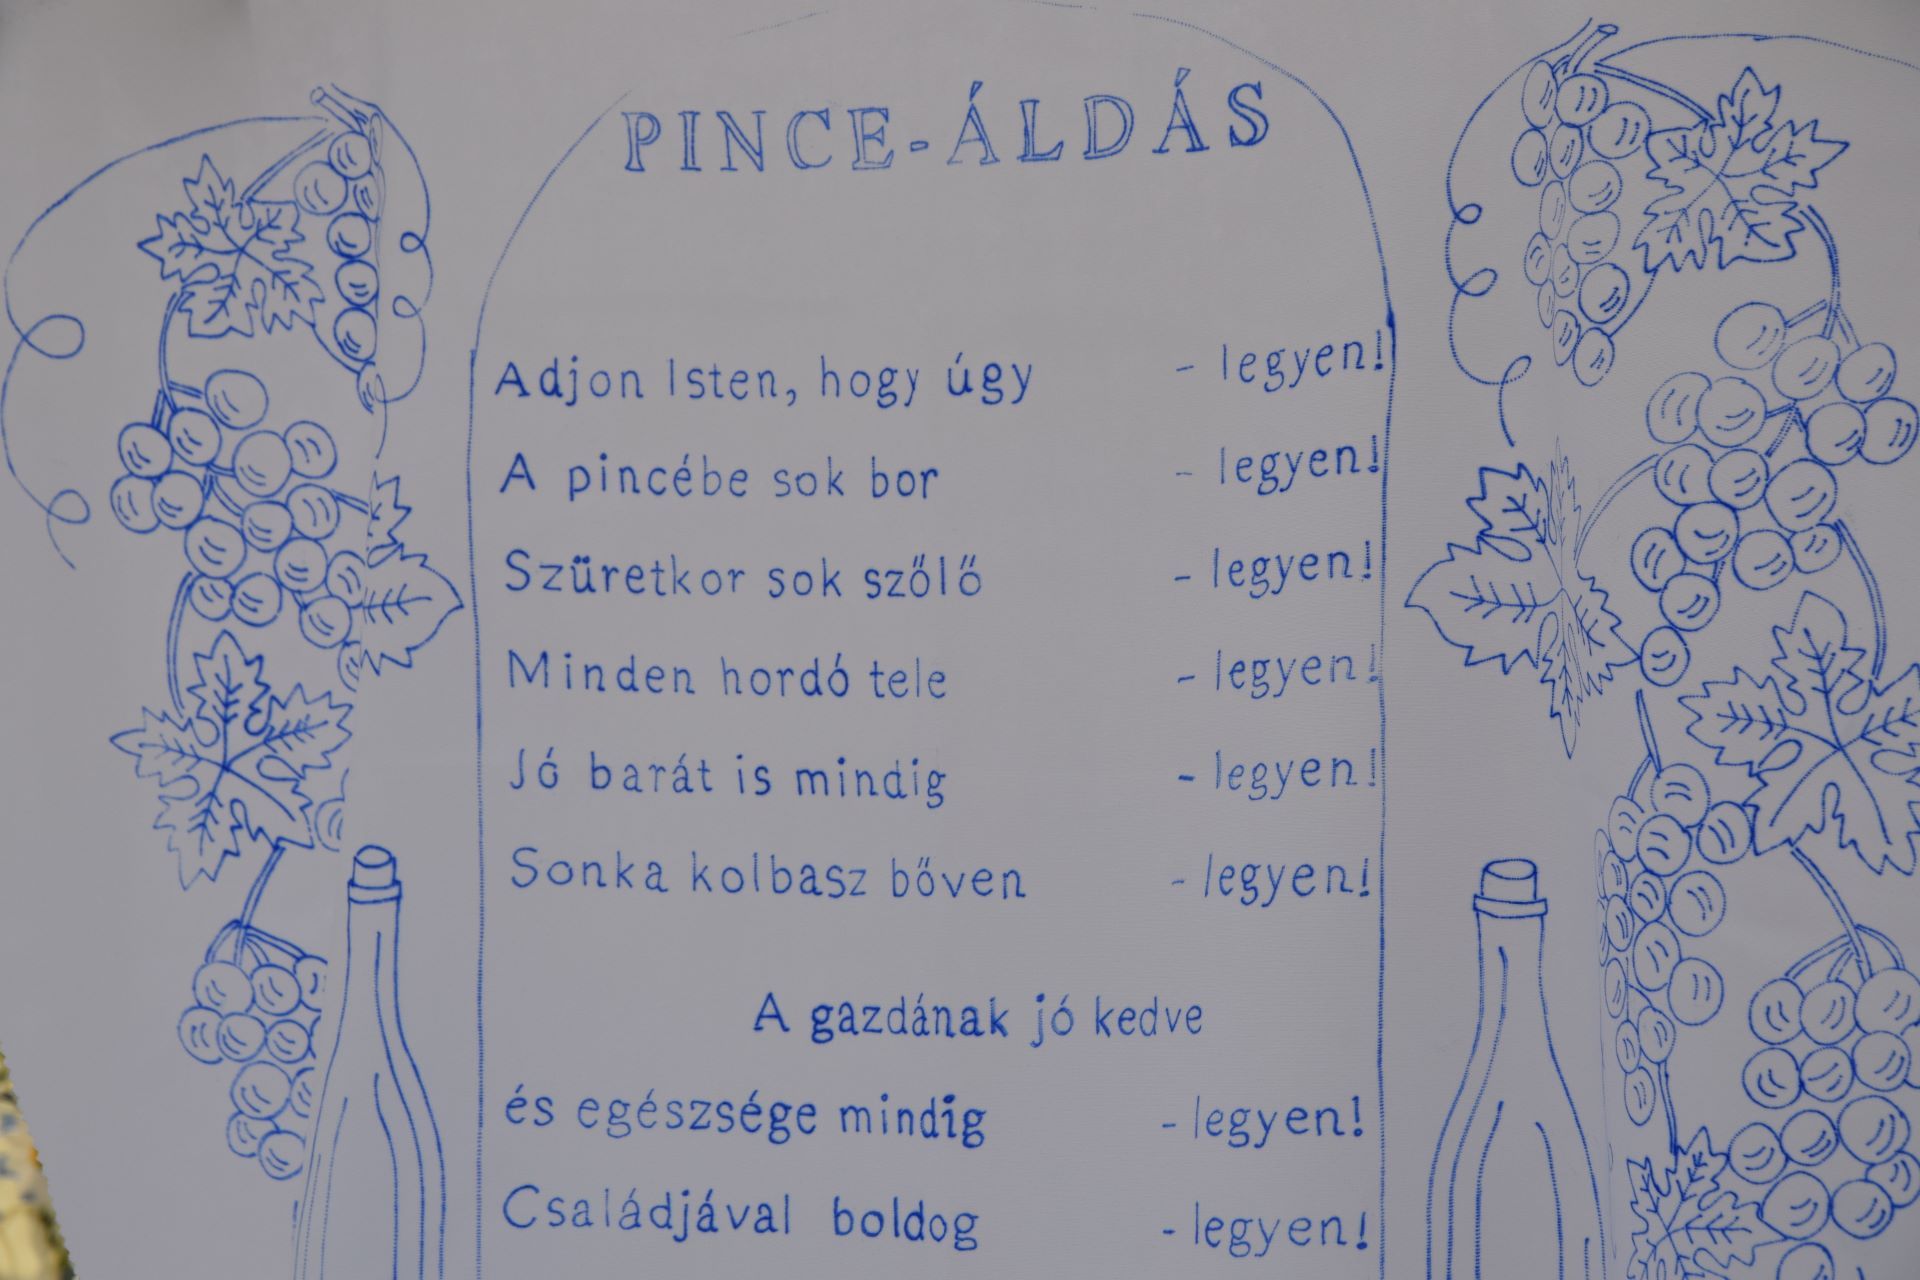 PINCE-ÁLDÁS
Adjon Isten, hogy úgy - legyen!
A pincébe sok bor - legyen!
Szüretkor sok szőlő - legyen!
Minden hordó tele - legyen!
Jó barát is mindig - legyen!
Sonka kolbasz bőven - legyen!
A gazdának jó kedve
és egészsége mindig - legyen!
Családjával boldog - legyen!